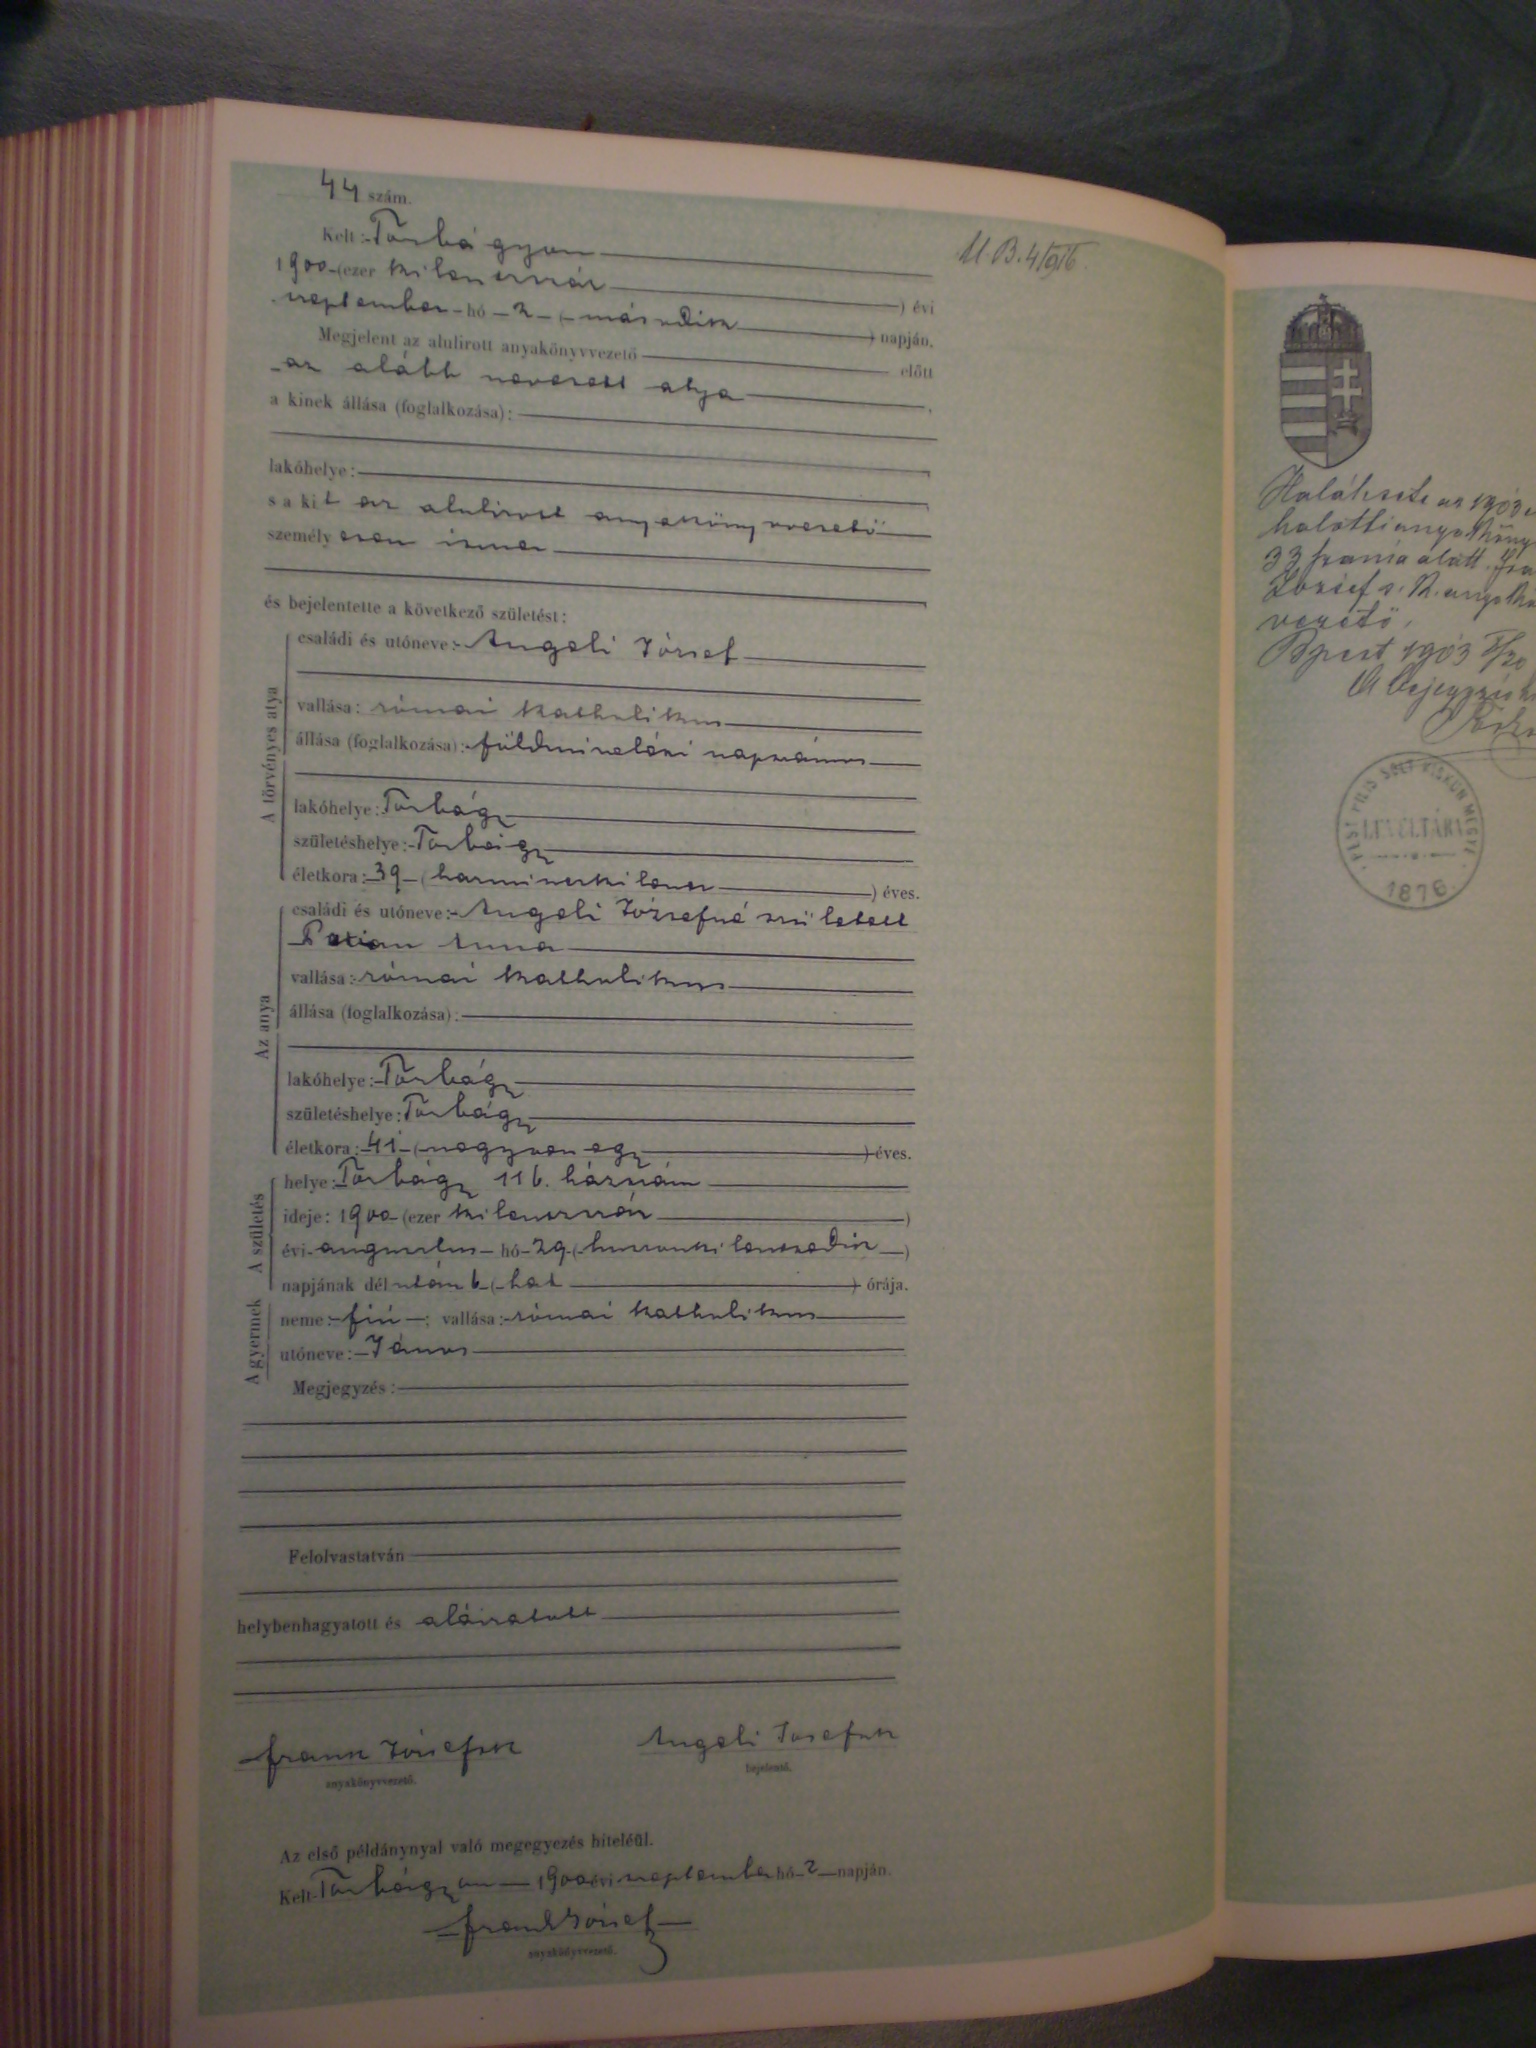 44 szám.
Kelt: Torbágyon
1900 (ezer kilenczszáz) évi
szeptember hó 2 (második) napján.
Megjelent az alulirott anyakönyvvezető előtt
az alább nevezett atya,
a kinek állása (foglalkozása):
lakóhelye:
s a kit az alulirott anyakönyvvezető
személyesen ismer
és bejelentette a következő születést:
A törvényes atya
családi és utóneve: Angeli József
vallása: római katholikus
állása (foglalkozása): földmívelési napszámos
lakóhelye: Torbágy
születéshelye: Torbágy
életkora: 39 (harminczkilencz) éves.
Az anya
családi és utóneve: Angeli Józsefné született
Anna
vallása: római katholikus
állása (foglalkozása):
lakóhelye: Torbágy
születéshelye: Torbágy
életkora: 41 (negyvenegy) éves.
A születés
helye: Torbágy 116. házszám
ideje: 1900 (ezer kilenczszáz)
évi augusztus hó 29 (huszonkilenczedik)
napjának délután 6 (hat) órája.
A gyermek
neme: fiú; vallása: római katholikus
utóneve: János
Megjegyzés:
Felolvastatván
helybenhagyatott és aláiratott
Frank József sk
anyakönyvvezető.
Angeli Josef sk
bejelentő.
Az első példánynyal való megegyezés hiteléül.
Kelt Torbágyon 1900 évi szeptember hó 2 napján.
Frank József
anyakönyvvezető.
U.B. 4/916
Halálesete az 1903
halotti anyaköny
33 száma alatt. Fra
József s. k. anyakö
vezető.
Bpest 1903 5/20
A bejegyzés
PEST PILIS SOLT KISKUN MEGYE
LEVÉLTÁRA
1876